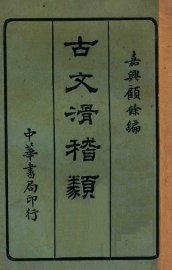 嘉興顧餘編
古文滑稽類
中華書局印行